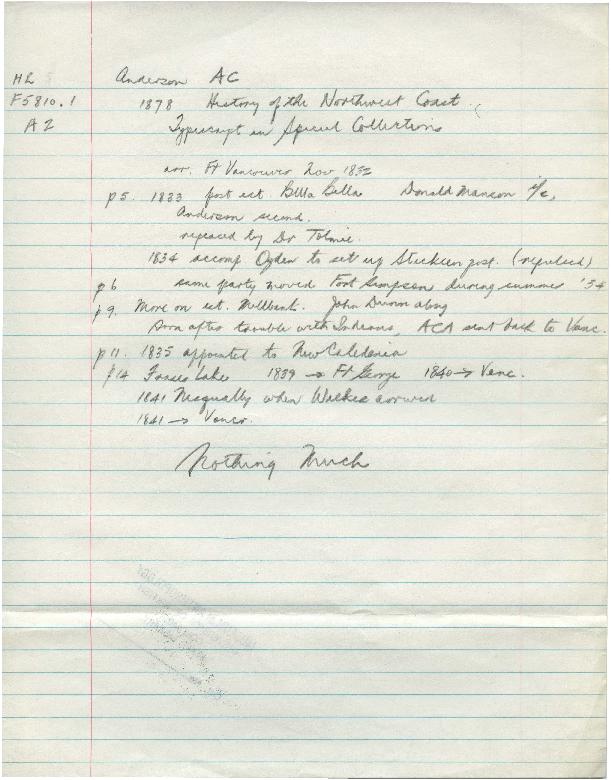 HR
Anderson AC
F5810.1
1878 History of the Northwest Coast
A2
Typescript in Special Collections
arr. Ft Vancouver Nov 1832
p 5. 1833 post est. Bella Bella Donald Manson i/c,
Anderson second.
replaced by Dr Tolmie.
1834 accomp Ogden to set up Stickeen post. (repulsed)
p 6 same party moved Fort Simpson during summer '34
p 9. More on est. Millbank. John Dunn along
Soon after trouble with Indians, ACA sent back to Vanc.
p 11. 1835 appointed to New Caledonia
p14 Frases Lake 1839 → Ft George 1840 → Vanc.
1841 Nisqually when Wilkes arrived
1841 → Vancr.
Nothing Much